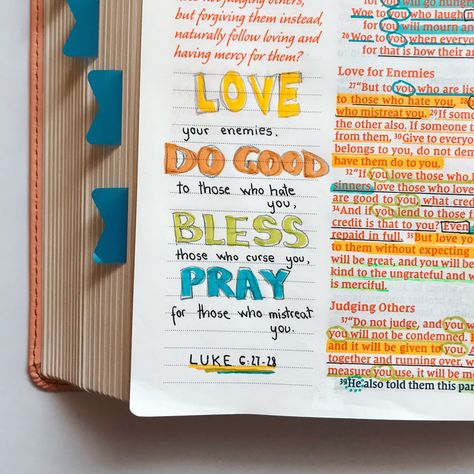 but forgiving them instead,
naturally follow loving and
having mercy for them?
LOVE
your enemies.
DO GOOD
to those who hate
you,
BLESS
those who curse you,
PRAY
for those who mistreat
you.
LUKE 6:27-28
for you will go hungry
Woe to you who laugh
for you will mourn and
26 Woe to you when everyone
for that is how their
Love for Enemies
27 "But to you who are lis
to those who hate you, 28
who mistreat you. 29 If some
the other also. If someone
from them. 30 Give to everyo
belongs to you, do not dem
have them do to you.
32 "If you love those who l
sinners love those who love
are good to you, what cred
34 And if you lend to those f
credit is that to you? Even
repaid in full. 35 But love yo
to them without expecting
will be great, and you will be
kind to the ungrateful and
is merciful.
Judging Others
37 "Do not judge, and you
you will not be condemned.
and it will be given to you.
together and running over, w
measure you use, it will be m
39 He also told them this par